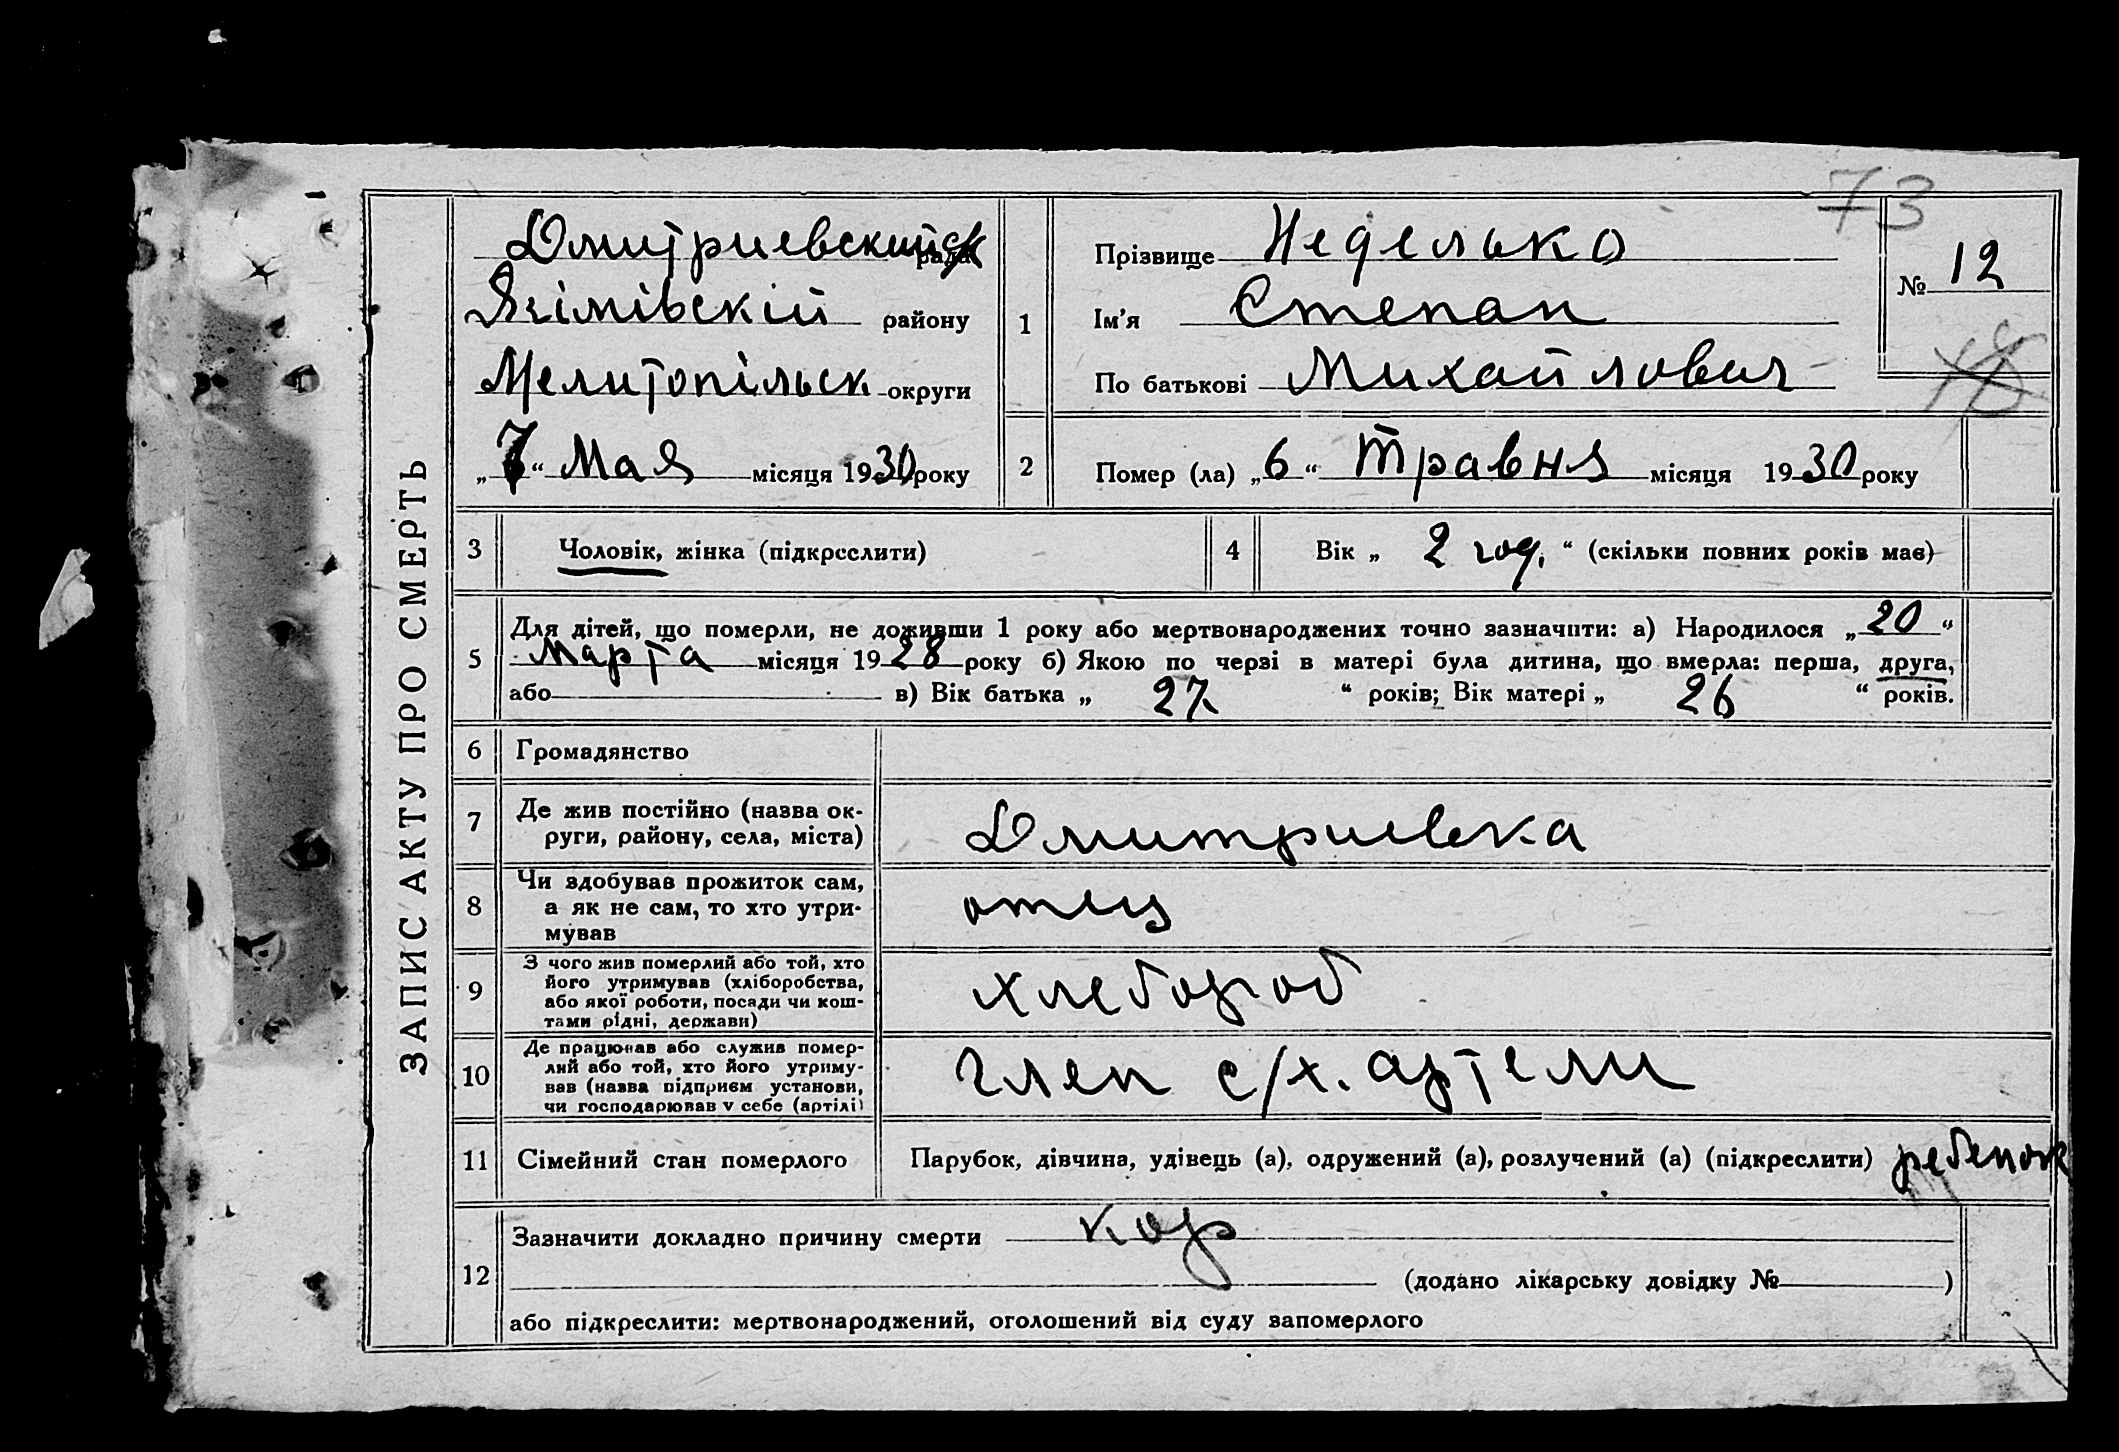 73
ЗАПИС АКТУ ПРО СМЕРТЬ
Дмитриевский с/к рада
Якімівскій району
Мелитопільск округи
„7“ Мая місяця 1930 року
1
Прізвище Неделько
Ім'я Степан
По батькові Михайлович
№ 12
2 Помер (ла) „6“ Травня місяця 1930 року
3 Чоловік, жінка (підкреслити)
4 Вік „2 год.“ (скільки повних років має)
5 Для дітей, що померли, не доживши 1 року або мертвонароджених точно зазначити: а) Народилося „20“
Марта місяця 1928 року б) Якою по черзі в матері була дитина, що вмерла: перша, друга,
або в) Вік батька „27“ років; Вік матері „26“ років.
6 Громадянство
7 Де жив постійно (назва ок-
руги, району, села, міста)
Дмитриевка
8 Чи здобував прожиток сам,
а як не сам, то хто утри-
мував
отец
9 З чого жив померлий або той, хто
його утримував (хліборобства,
або якої роботи, посади чи кош-
тами рідні, держави)
хлебороб
10 Де працював або служив помер-
лий або той, хто його утриму-
вав (назва підприєм установи,
чи господарював у себе (артілі)
член с/х. артели
11 Сімейний стан померлого
Парубок, дівчина, удівець (а), одружений (а), розлучений (а) (підкреслити) ребенок
12 Зазначити докладно причину смерти кор
(додано лікарську довідку № )
або підкреслити: мертвонароджений, оголошений від суду запомерлого